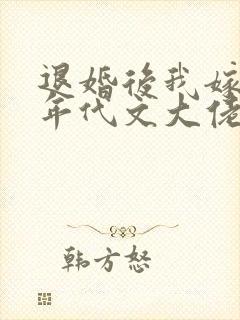 退婚後我嫁
年代文大佬
韩方怒